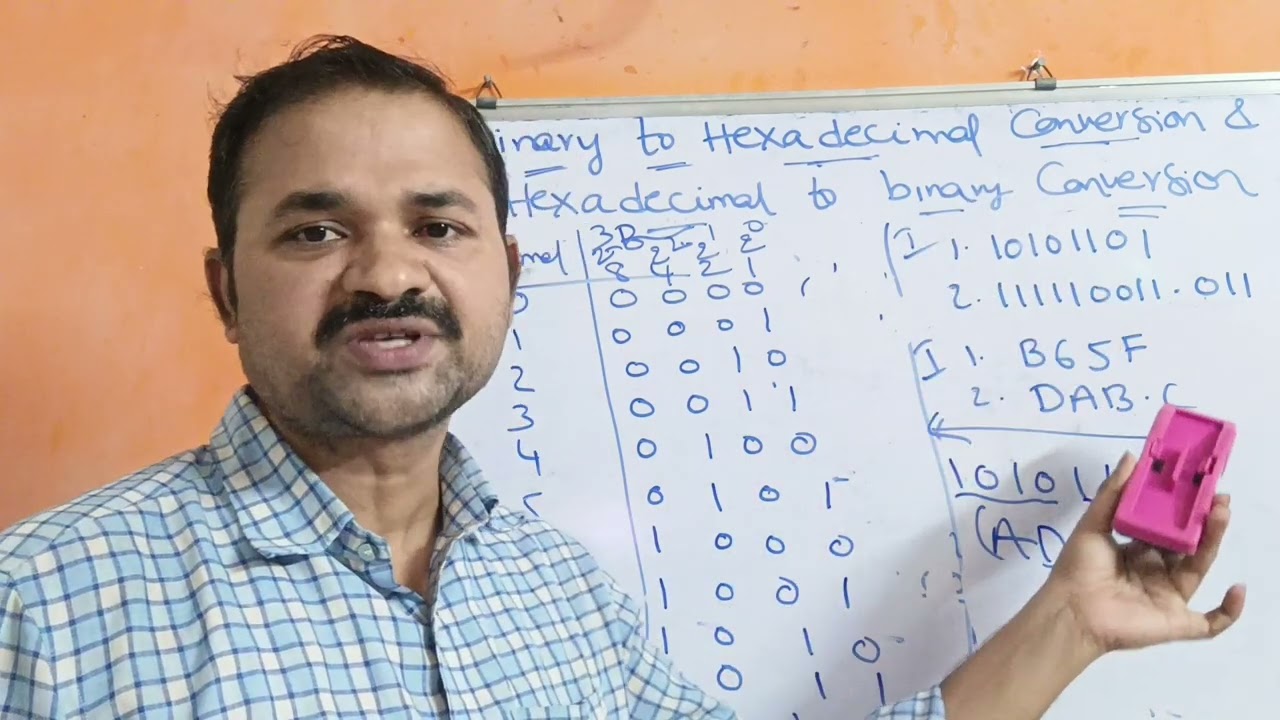 inary to Hexadecimal Conversion &
Hexadecimal to binary Conversion
mal
8 4 2 1
0 0 0 0 0
1 0 0 0 1
2 0 0 1 0
3 0 0 1 1
4 0 1 0 0
5 0 1 0 1
1 0 0 0
1 0 0 1
1 0 1 0
0 1 1
I 1. 10101101
2. 111110011.011
I 1. B65F
2. DAB.C
1010 11
(AD